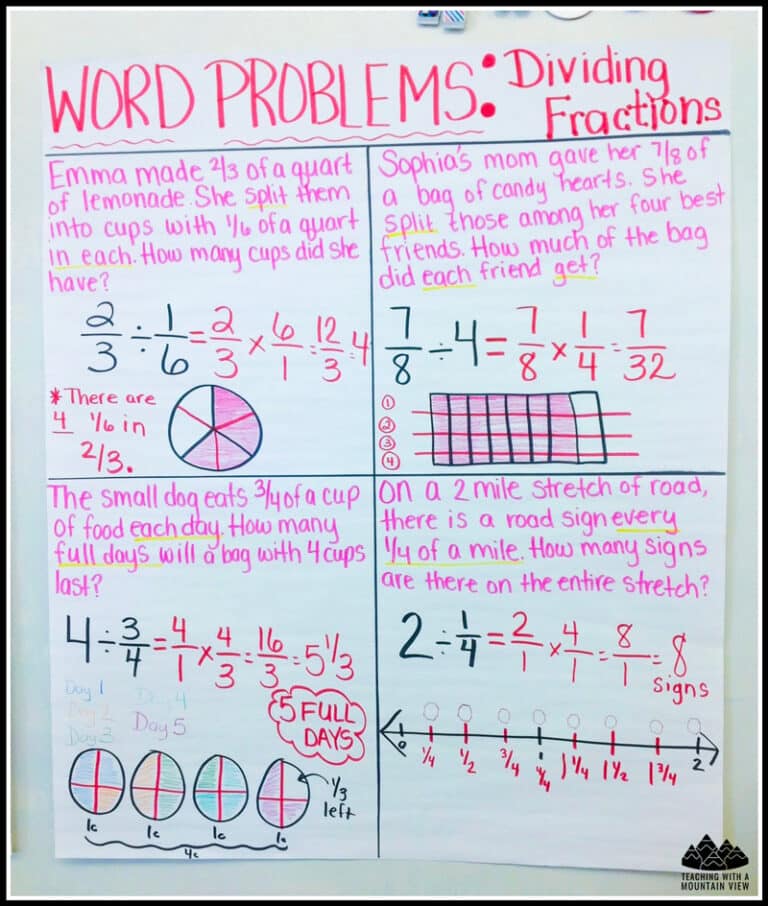 WORD PROBLEMS: Dividing Fractions
Emma made 2/3 of a quart
of lemonade. She split them
into cups with 1/6 of a quart
in each. How many cups did she
have?
2/3 ÷ 1/6 = 2/3 × 6/1 = 12/3 = 4
* There are
4 1/6 in
2/3.
Sophia's mom gave her 7/8 of
a bag of candy hearts. She
split those among her four best
friends. How much of the bag
did each friend get?
7/8 ÷ 4 = 7/8 × 1/4 = 7/32
1
2
3
4
The small dog eats 3/4 of a cup
of food each day. How many
full days will a bag with 4 cups
last?
4 ÷ 3/4 = 4/1 × 4/3 = 16/3 = 5 1/3
Day 1
Day 2
Day 3
Day 4
Day 5
5 FULL
DAYS
1/3
left
1c 1c 1c 1c
4c
On a 2 mile stretch of road,
there is a road sign every
1/4 of a mile. How many signs
are there on the entire stretch?
2 ÷ 1/4 = 2/1 × 4/1 = 8/1 = 8
signs
0 1/4 1/2 3/4 1 4/4 1 1/4 1 1/2 1 3/4 2
TEACHING WITH A
MOUNTAIN VIEW